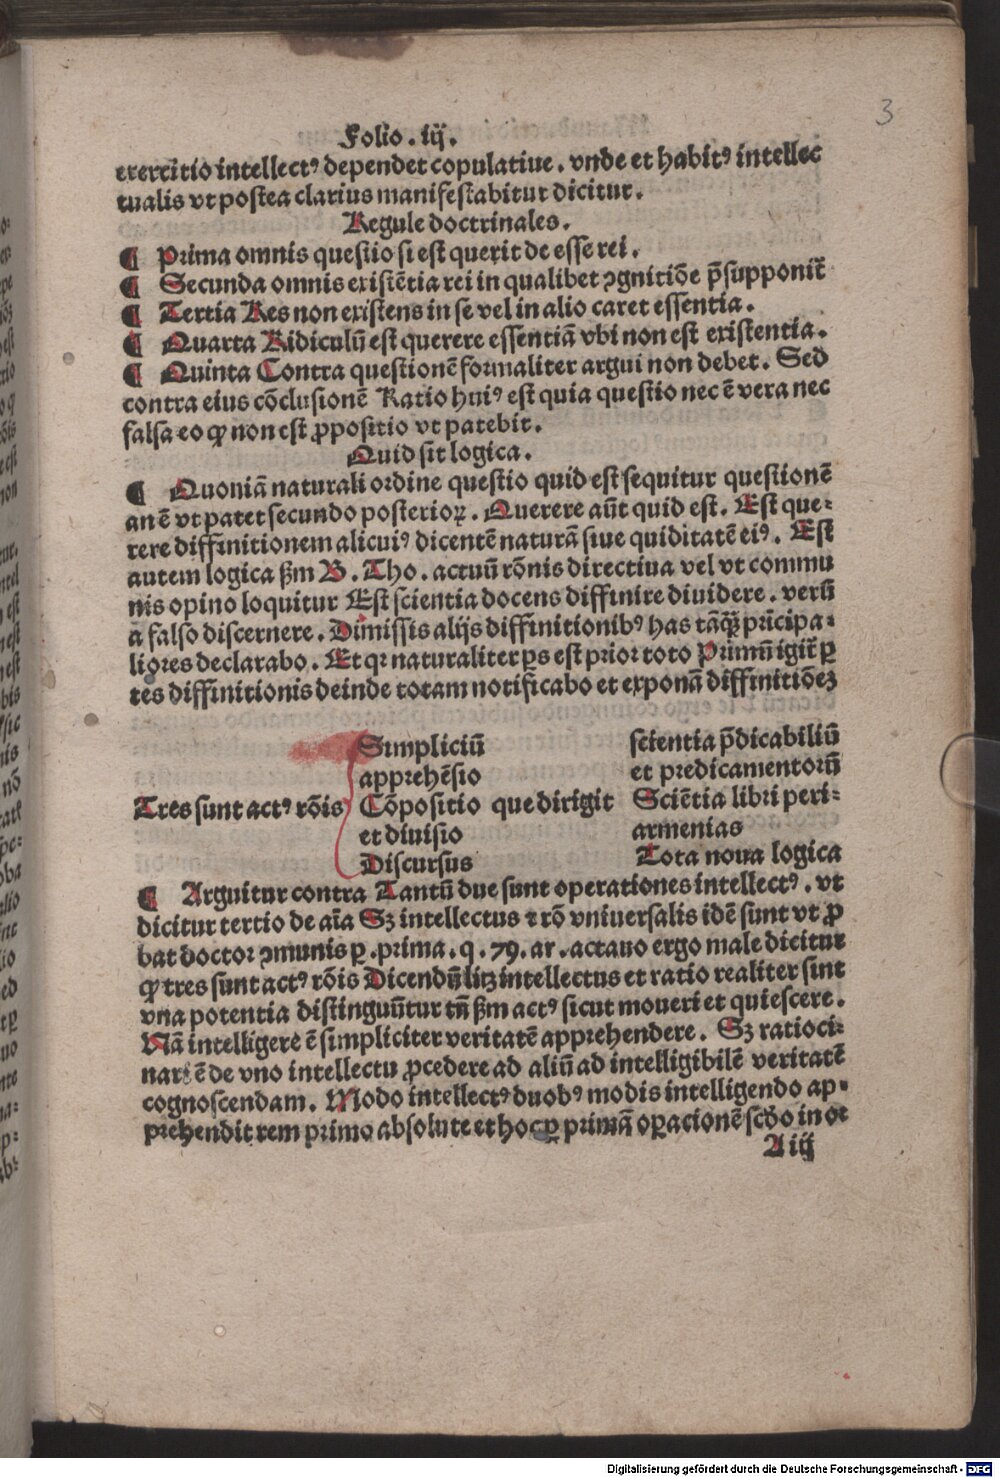 3
Folio . iij.
exercitio intellectꝰ dependet copulatiue . vnde et habitꝰ intellec
tualis vt postea clarius manifestabitur dicitur.
Regule doctrinales.
¶ Prima omnis questio si est querit de esse rei.
¶ Secunda omnis existētia rei in qualibet ꝯgnitiōe p̄supponit᷑
¶ Tertia Res non existens in se vel in alio caret essentia.
¶ Quarta Ridiculū est querere essentiā vbi non est existentia.
¶ Quinta Contra questionē formaliter argui non debet. Sed
contra eius cōclusionē Ratio huiꝰ est quia questio nec ē vera nec
falsa eo ꝙ non est ꝓpositio vt patebit.
Quid sit logica.
¶ Quoniā naturali ordine questio quid est sequitur questionē
an ē vt patet secundo posterioꝝ. Querere aūt quid est. Est que-
rere diffinitionem alicuiꝰ dicentē naturā siue quiditatē eiꝰ. Est
autem logica ẜm B. Tho. actuū rōnis directiua vel vt commu
nis opino loquitur Est scientia docens diffinire diuidere. verū
a falso discernere. Dimissis alijs diffinitionibꝰ has tāꝗ̄ᷓ prīcipa-
liores declarabo. Et qꝛ naturaliter ꝑs est prior toto Primū igit᷑ ꝑ
tes diffinitionis deinde totam notificabo et exponā diffinitiōeꝫ
Simpliciū scientia p̄dicabiliū
apprehēsio et predicamentorū
Tres sunt actꝰ rōis Cōpositio que dirigit Sciētia libri peri-
et diuisio armenias
Discursus Tota noua logica
¶ Arguitur contra Tantū due sunt operationes intellectꝰ. vt
dicitur tertio de aīa Sꝫ intellectus ⁊ rō vniuersalis idē sunt vt ꝓ
bat doctor ꝯmunis ꝑ . prima. q . 79. ar . actauo ergo male dicitur
ꝙ tres sunt actꝰ rōis Dicendū lꝫ intellectus et ratio realiter sint
vna potentia distinguūtur tn̄ ẜm actꝰ sicut moueri et quiescere.
Nā intelligere ē simpliciter veritatē apprehendere. Sꝫ ratioci-
nari ē de vno intellectu ꝓcedere ad aliū ad intelligibilē veritatē
cognoscendam. Modo intellectꝰ duobꝰ modis intelligendo ap-
prehendit rem primo absolute et hoc ꝑ primā oꝑacionē scdo in or
A iij
Digitalisierung gefördert durch die Deutsche Forschungsgemeinschaft - DFG